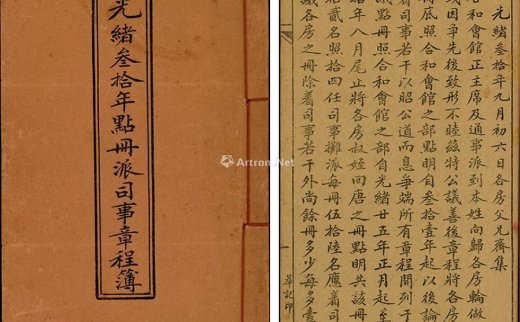 光緒叁拾年點冊派司事章程簿
光緒叁拾年九月初六日各房父兄齊集
合和會館正主席及通事派到本姓向歸各房輪做
或因爭先後致形不睦茲特公議善後章程將各房
將底照合和會館之部點明自叁拾壹年起以後論
議點冊照合和會館之部自光緒廿五年正月起至
着司事若干以昭公道而息爭端所有章程開列于
年八月尾止將各房叔姪回唐之冊點明共該冊
拾貳名照拾四任司事攤派每冊伍拾陸名應着司
議各房之冊除着司事若干外尚餘冊多少每多壹
萃記印
Artron.Net